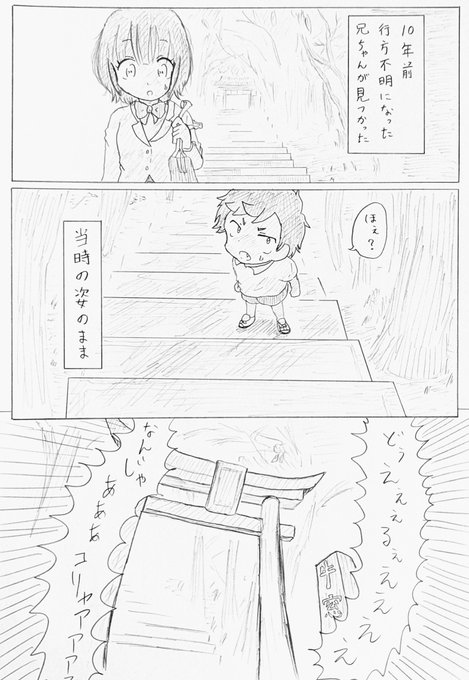 10年前
行方不明になった
兄ちゃんが見つかった
ほぇ?
当時の姿のまま
どぅえぇぇるぇぇぇぇ
なんじゃあああコリャアアアア